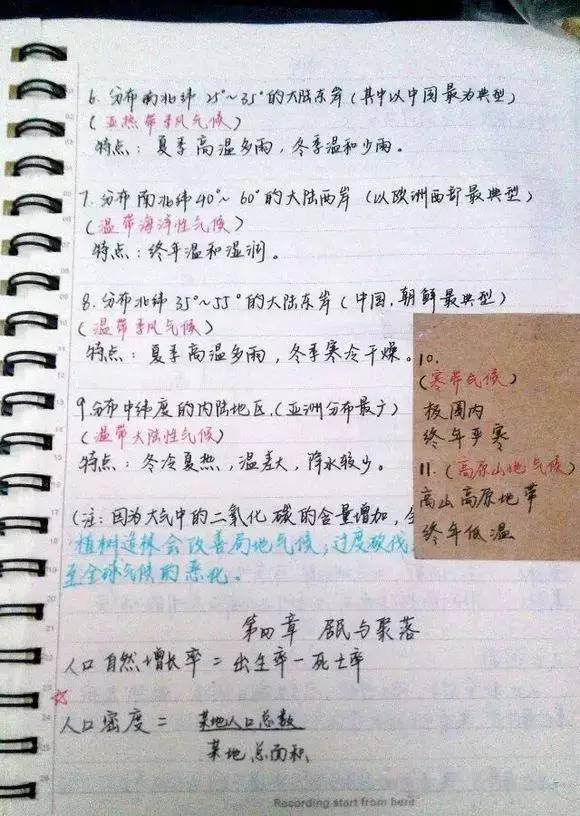 6. 分布南北纬 25°~35°的大陆东岸(其中以中国最为典型)
(亚热带季风气候)
特点: 夏季高温多雨,冬季温和少雨。
7. 分布南北纬40°~60°的大陆西岸 (以欧洲西部最典型)
(温带海洋性气候)
特点: 终年温和湿润。
8. 分布北纬 35°~55°的大陆东岸(中国,朝鲜最典型)
(温带季风气候)
特点: 夏季高温多雨,冬季寒冷干燥。
9.分布中纬度的内陆地区.(亚洲分布最广)
(温带大陆性气候)
特点: 冬冷夏热,温差大,降水较少。
10.
(寒带气候)
极圈内
终年严寒
11. (高原山地气候)
高山高原地带
终年低温
(注: 因为大气中的二氧化碳的含量增加,全
植树造林会改善局地气候; 过度砍伐
至全球气候的恶化。
第四章 居民与聚落
人口自然增长率 = 出生率 - 死亡率
人口密度 = 某地人口总数
某地总面积
Recording start from here